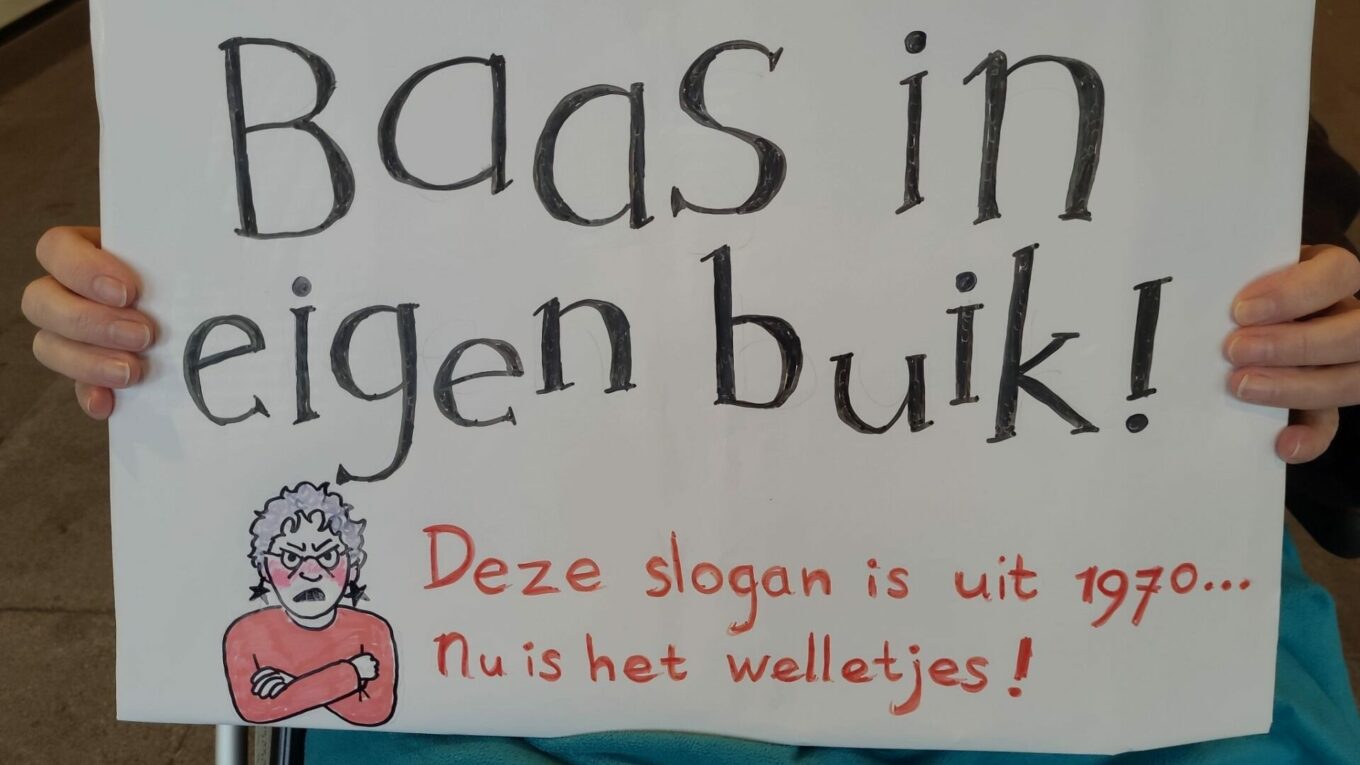 Baas in
eigen buik!
Deze slogan is uit 1970...
Nu is het welletjes!